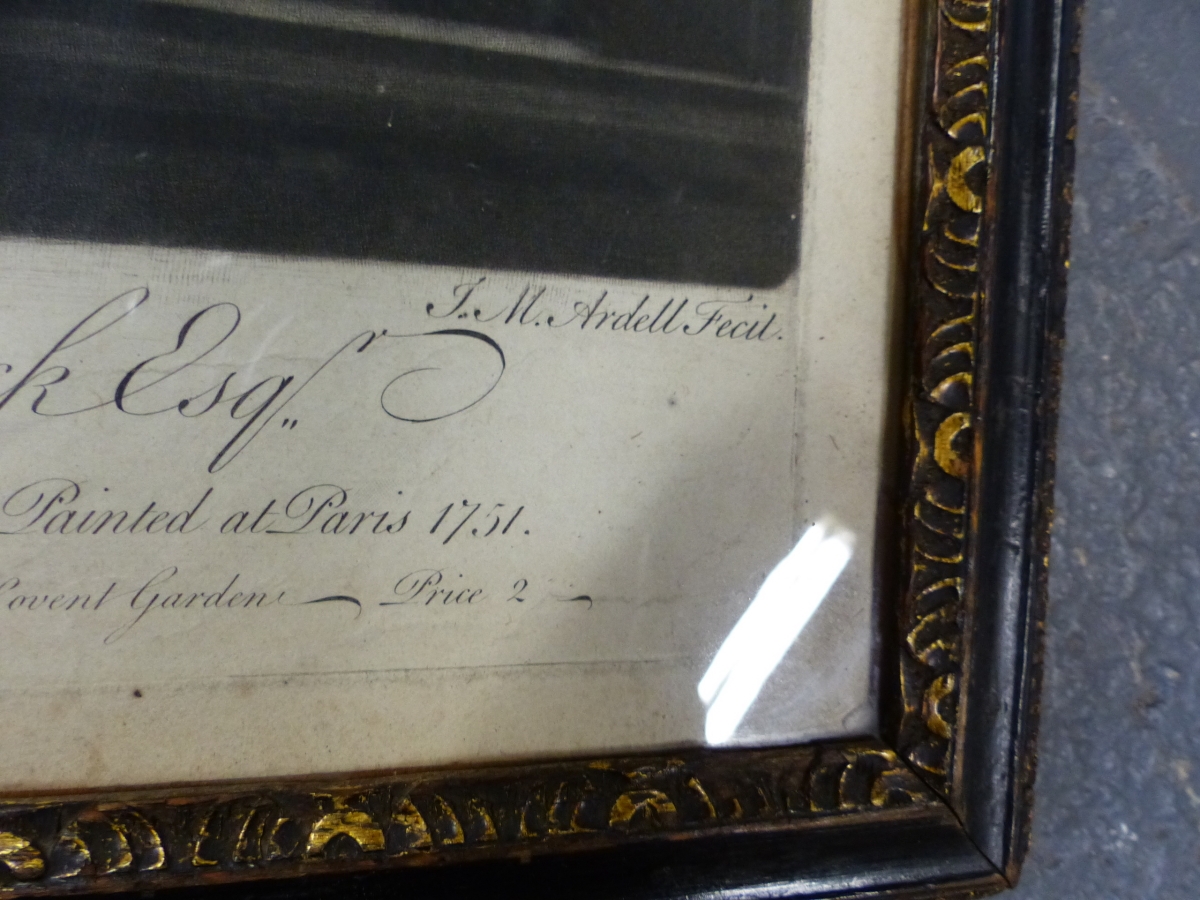 J. M. Ardell Fecit.
ck Esq.r
Painted at Paris 1751.
Covent Garden Price 2